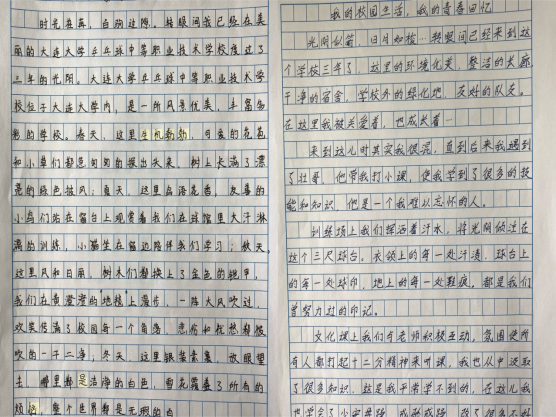 时光荏苒,白驹过隙,转眼间我已经在美
丽的大连大学乒乓球中等职业技术学校度过了
三年的光阴。大连大学乒乓球中等职业技术学
校位于大连大学内,是一所风景优美,丰富多
彩的学校。春天,这里生机勃勃,可爱的花苞
和小草们都悄悄的探出头来,树上长满了漂
亮的绿色披风;夏天,这里鸟语花香,友善的
小鸟们站在窗台上观赏着我们在球馆里大汗淋
漓的训练,小猫坐在窗边陪伴我们学习;秋天,
这里风和日丽,树木们都换上了金色的铠甲,
我们在黄澄澄的"地毯"上漫步,一阵大风吹过,
欢笑传满了校园每一个角落,悲伤和忧愁都被
吹的一干二净;冬天,这里银装素裹,放眼望
去,哪里都是洁净的白色,雪花覆盖了所有的
烦恼,整个世界都是无瑕的白
我的校园生活,我的青春回忆
光阴似箭,日月如梭…转眼间已经来到这
个学校三年了,这里的环境优美,整洁的长廊
干净的宿舍,学校外的绿化地,友好的队友。
在这里我被关爱着,也成长着…
来到这儿时其实我很混,直到后来我遇到
了壮哥,他带我打小课,使我学到了很多的技
能和知识,他是一个我难以忘怀的人。
训练场上我们挥洒着汗水,将光阴倾注在
这个三尺球台。衣领上的每一处汗渍,球台上
的每一处球印,地上的每一处鞋痕,都是我们
曾努力过的印记。
文化课上我们与老师积极互动,氛围使所
有人都打起十二分精神来听课,我也从中汲取
了很多知识,这是我平常学不到的,在这儿我
也学会了